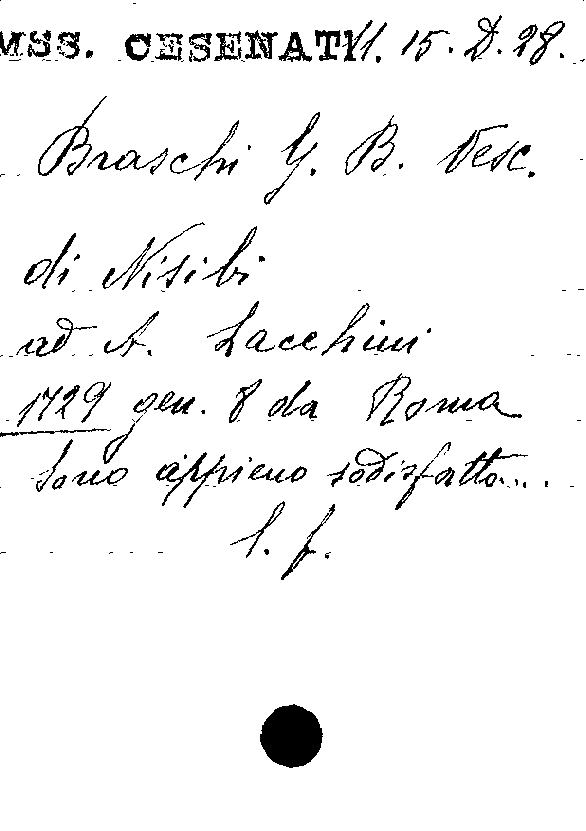 MSS. CESENATI 11. 15. D. 28.
Braschi G. B. Vesc.
di Nisibi
ad A. Lacchini
1729 gen. 8 da Roma
Sono appieno sodisfatto...
l. f.